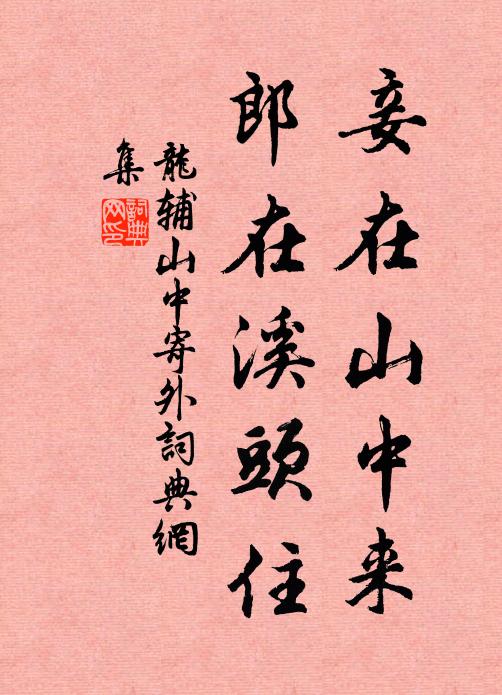 妾在山中来
郎在溪頭住
龍辅山中寄外詞典網
集
詞典
网印